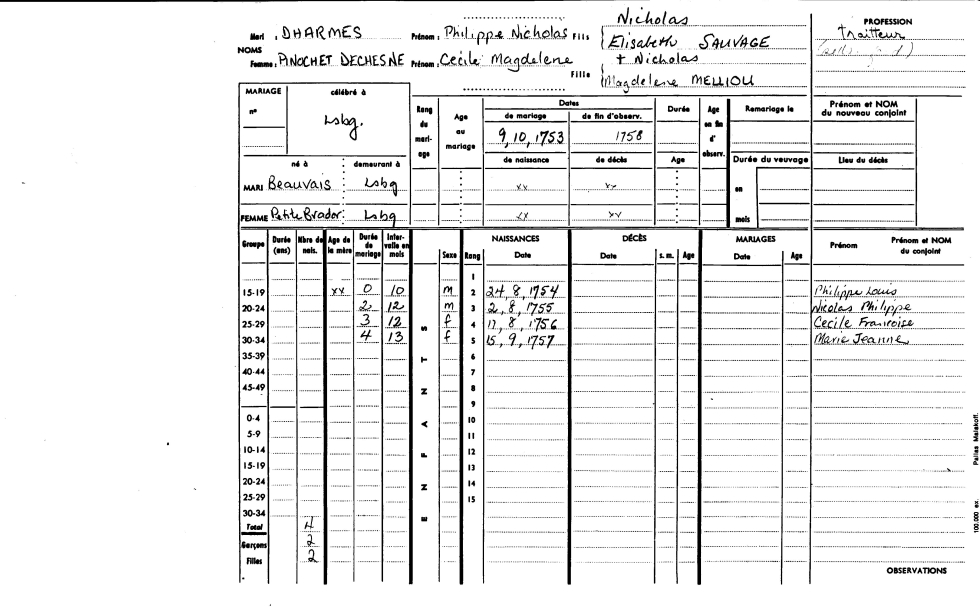 Nicholas
PROFESSION
Mari : DHARMES Prénom : Philippe Nicholas Fils Elisabeth SAUVAGE traitteur
NOMS
+ Nicholas
Femme : PINOCHET DECHESNE Prénom : Cecile Magdelene
Fille Magdelene MELLIOU
MARIAGE célébré à
n° Lsbg.
Rang du mariage
Age au mariage
Dates
de mariage de fin d'observ.
9, 10, 1753 1758
Durée
Age en fin d'observ.
Remariage le
Prénom et NOM du nouveau conjoint
né à demeurant à
de naissance de décès Age
Durée du veuvage
Lieu du décès
MARI Beauvais Lsbg xx xx
en
FEMME Petit Brador. Lsbg xx xx
mois
Groupe Durée (ans) Nbre de nais. Age de la mère Durée de mariage Intervalle en mois
Sexe Rang
NAISSANCES Date
DÉCÈS Date s. m. Age
MARIAGES Date Age
Prénom Prénom et NOM du conjoint
ENFANTS
1
15-19 xx 0 10 m 2 24, 8, 1754 Philippe Louis
20-24 2 12 m 3 2, 8, 1755 Nicolas Philippe
25-29 3 12 f 4 17, 8, 1756 Cecile Francoise
30-34 4 13 f 5 15, 9, 1757 Marie Jeanne
35-39 6
40-44 7
45-49 8
9
0-4 10
5-9 11
10-14 12
15-19 13
20-24 14
25-29 15
30-34
Total 4
Garçons 2
Filles 2
OBSERVATIONS
100.000 ex. Paillas Malakoff.